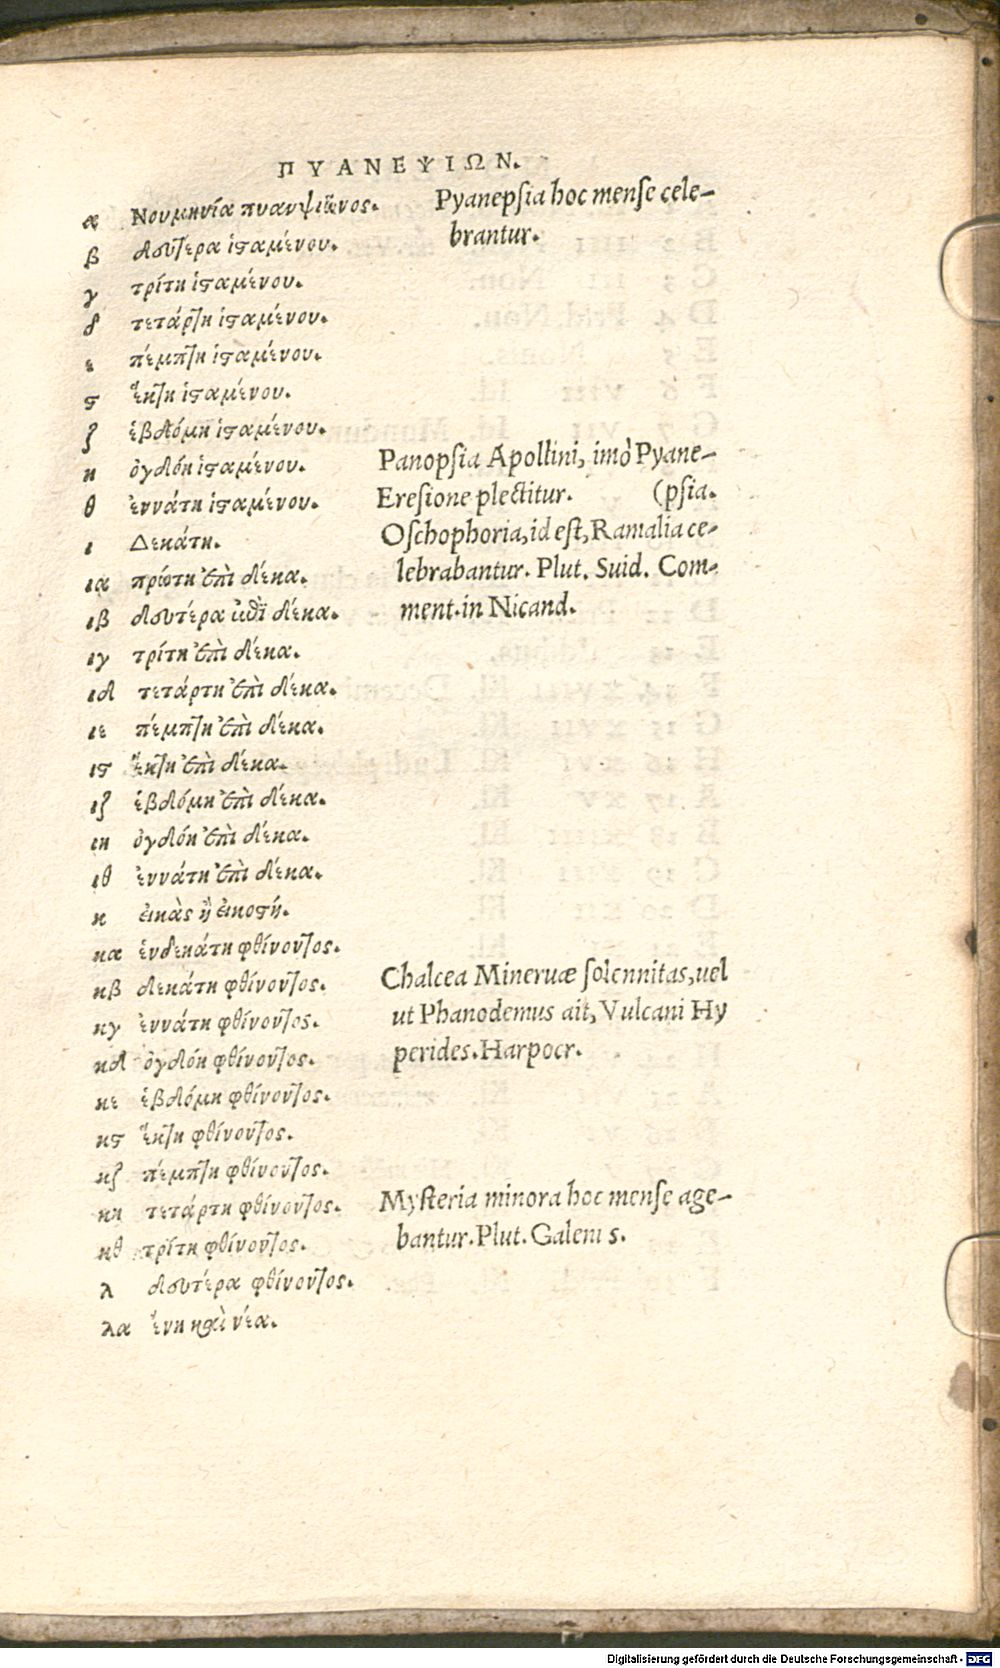 ΠΥΑΝΕΨΙΩΝ.
α Νουμηνία πυανψιῶνος. Pyanepsia hoc mense cele-
β δευτέρα ἱσαμένου. brantur.
γ τρίτη ἱσαμένου.
δ τετάρτη ἱσαμένου.
ε πέμπτη ἱσαμένου.
ϛ ἕκτη ἱσαμένου.
ζ ἑβδόμη ἱσαμένου.
η ὀγδόη ἱσαμένου. Panopsia Apollini, imò Pyane-
θ ἐννάτη ἱσαμένου. Eresione plectitur. (psia.
ι Δεκάτη. Oschophoria, id est, Ramalia ce-
ια πρώτη ἐπὶ δέκα. lebrabantur. Plut. Suid. Com-
ιβ δευτέρα ἐπὶ δέκα. ment. in Nicand.
ιγ τρίτη ἐπὶ δέκα.
ιδ τετάρτη ἐπὶ δέκα.
ιε πέμπτη ἐπὶ δέκα.
ιϛ ἕκτη ἐπὶ δέκα.
ιζ ἑβδόμη ἐπὶ δέκα.
ιη ὀγδόη ἐπὶ δέκα.
ιθ ἐννάτη ἐπὶ δέκα.
κ εἰκὰς ἢ εἰκοστή.
κα ἑνδεκάτη φθίνοντος.
κβ δεκάτη φθίνοντος. Chalcea Mineruæ solennitas, uel
κγ ἐννάτη φθίνοντος. ut Phanodemus ait, Vulcani Hy
κδ ὀγδόη φθίνοντος. perides. Harpocr.
κε ἑβδόμη φθίνοντος.
κϛ ἕκτη φθίνοντος.
κζ πέμπτη φθίνοντος.
κη τετάρτη φθίνοντος. Mysteria minora hoc mense age-
κθ τρίτη φθίνοντος. bantur. Plut. Galenus.
λ δευτέρα φθίνοντος.
λα ἕνη καὶ νέα.
Digitalisierung gefördert durch die Deutsche Forschungsgemeinschaft - DFG